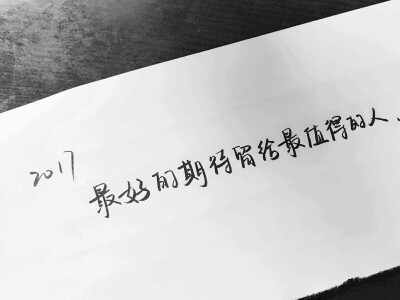 2017
最好的期待留给最值得的人、